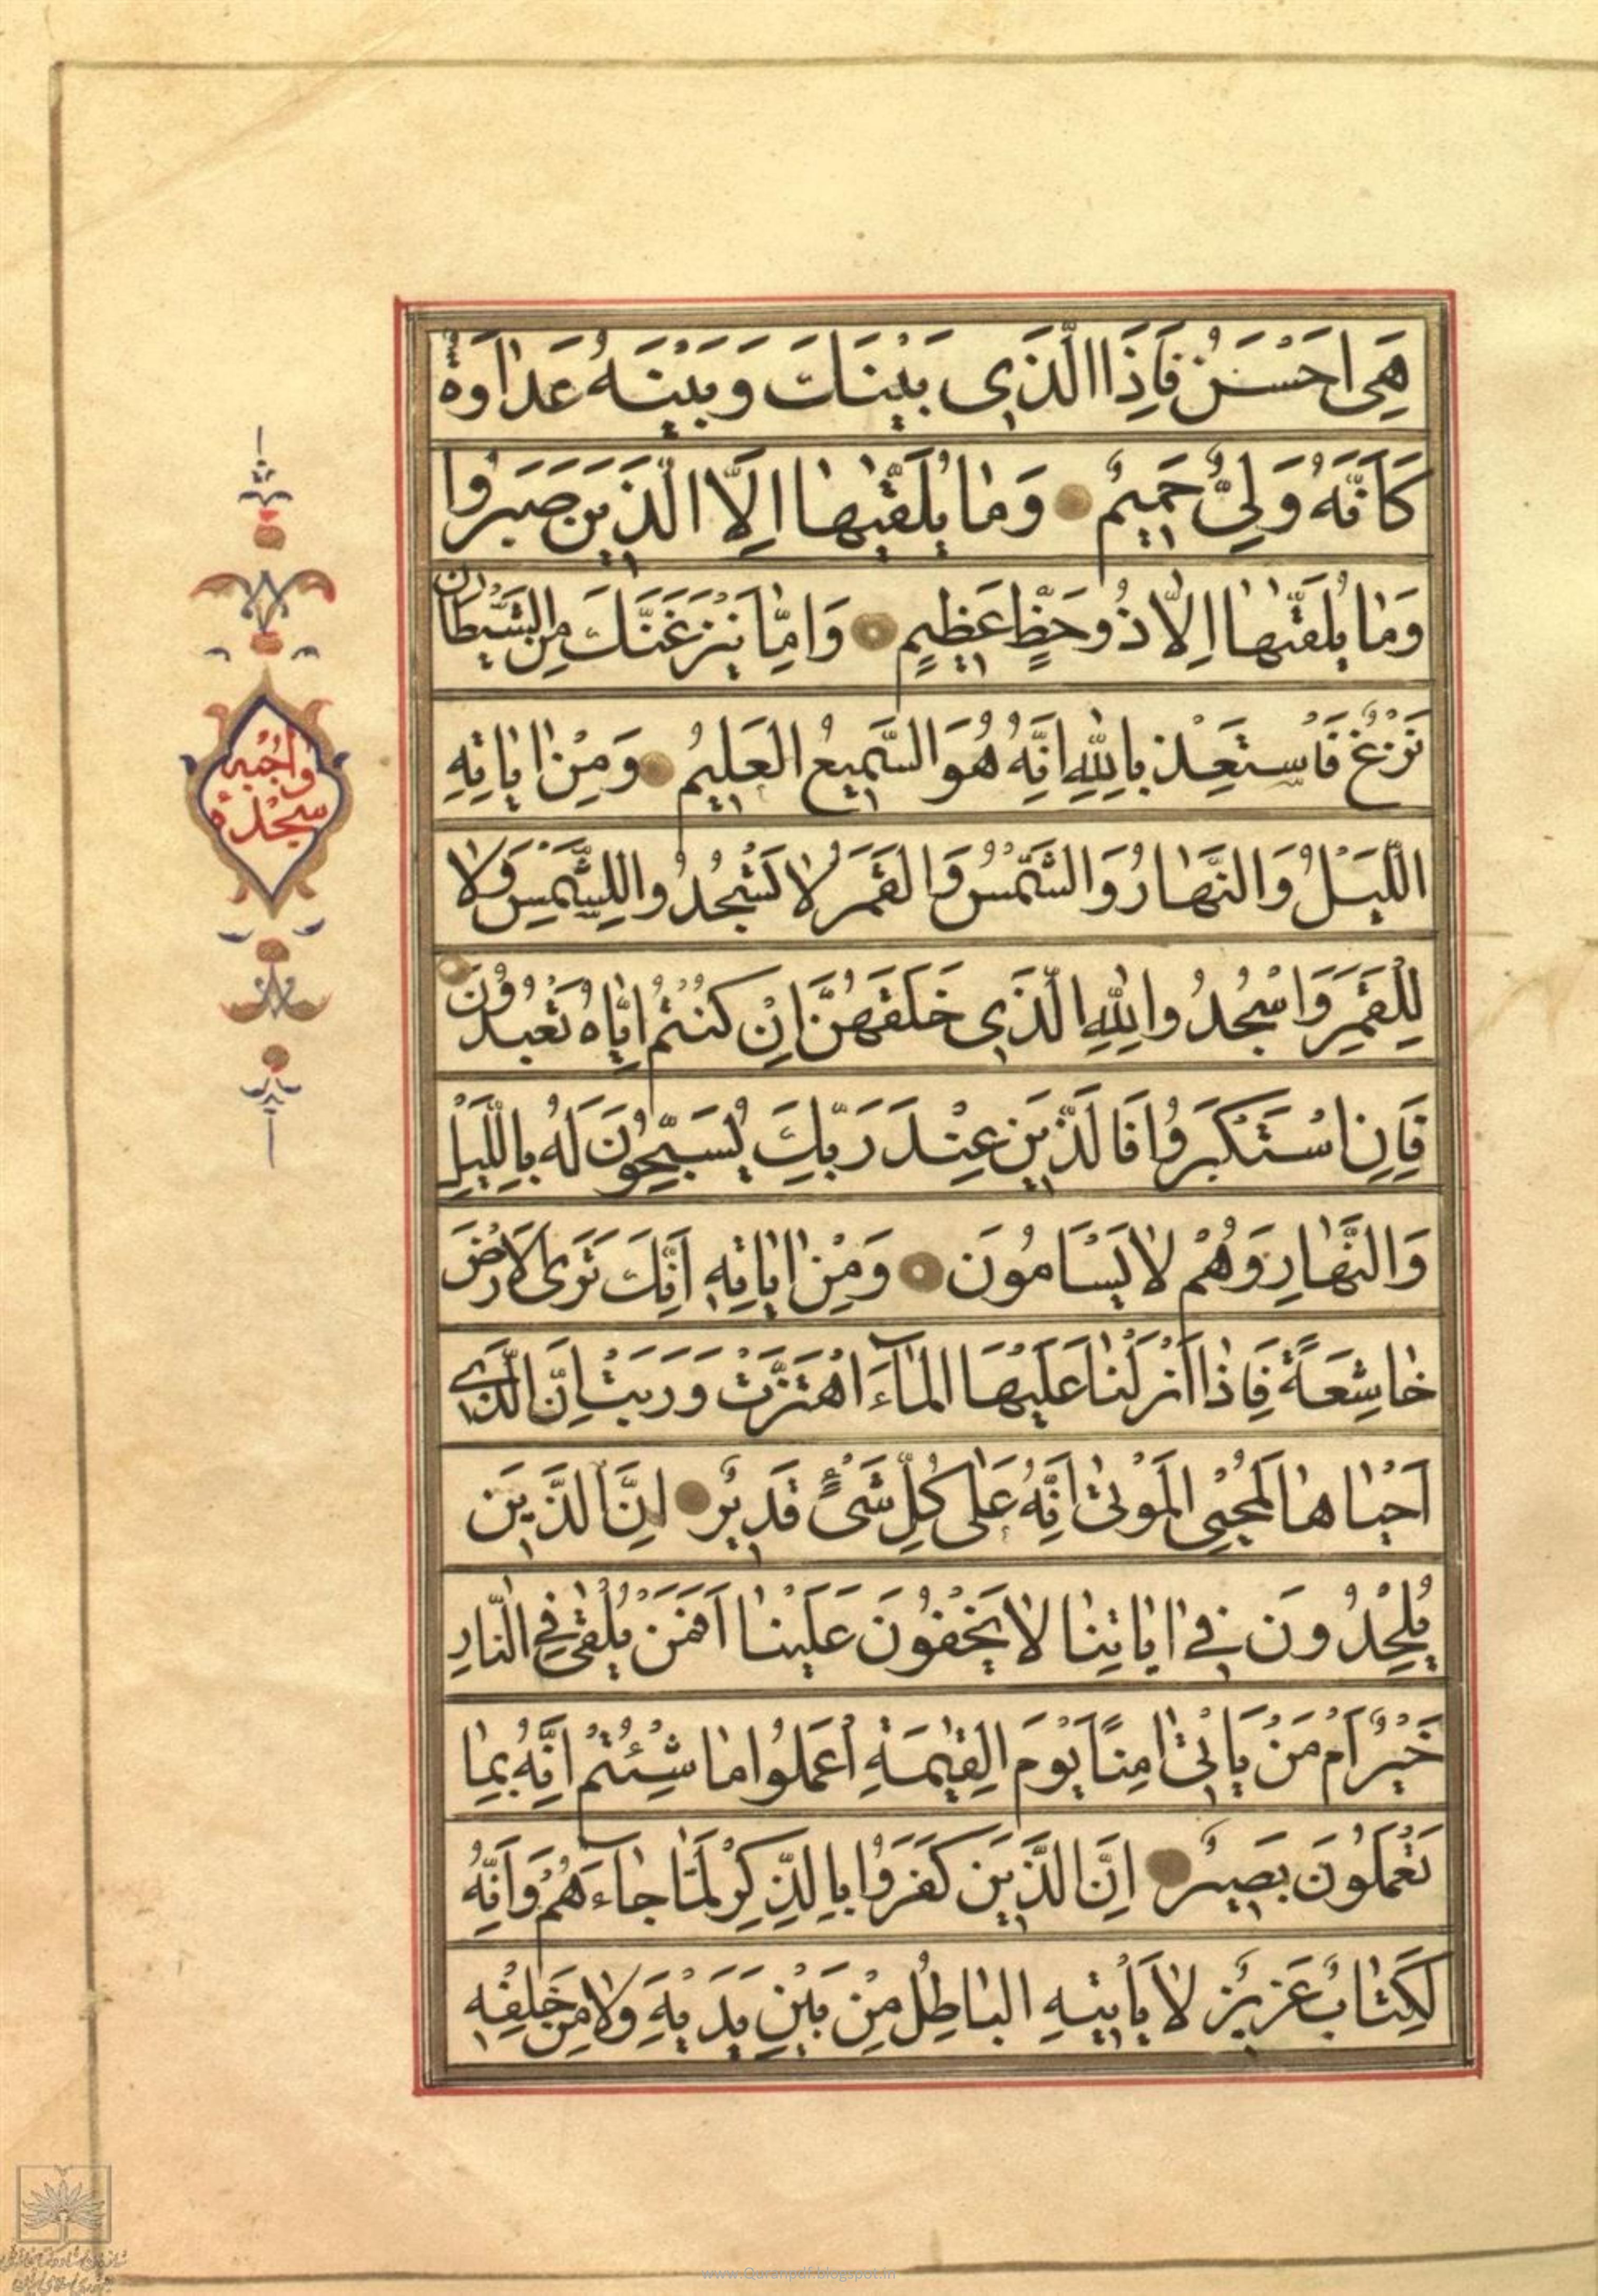 هِیَ اَحْسَنُ فَاِذَا الَّذَی بَیْنَكَ وَبَیْنَهُ عَدٰاوَةٌ
كَاَنَّهُ وَلِیٌّ حَمیمٌ وَمٰا یُلَقّٰیهٰا اِلَّا الَّذینَ صَبَرُوا
وَمٰا یُلَقّٰیهٰا اِلاّٰ ذُوحَظٍّ عَظیمٍ وَاِمّٰا یَنْزَغَنَّكَ مِنَ الشَّیْطٰانِ
نَزْغٌ فَاسْتَعِذْ بِاللّٰهِ اِنَّهُ هُوَ السَّمیعُ الْعَلیمُ وَمِنْ اٰیٰاتِهِ
اللَّیْلُ وَالنَّهٰارُ وَالشَّمْسُ وَالْقَمَرُ لاٰ تَسْجُدُوا لِلشَّمْسِ وَلاٰ
لِلْقَمَرِ وَاسْجُدُوا لِلّٰهِ الَّذَی خَلَقَهُنَّ اِنْ كُنْتُمْ اِیّٰاهُ تَعْبُدُونَ
فَاِنِ اسْتَكْبَرُوا فَالَّذینَ عِنْدَ رَبِّكَ یُسَبِّحُونَ لَهُ بِاللَّیْلِ
وَالنَّهٰارِ وَهُمْ لاٰ یَسْاَمُونَ وَمِنْ اٰیٰاتِهِ اَنَّكَ تَرَی الْاَرْضَ
خٰاشِعَةً فَاِذٰا اَنْزَلْنٰا عَلَیْهَا الْمٰآءَ اهْتَزَّتْ وَرَبَتْ اِنَّ الَّذی
اَحْیٰاهٰا لَمُحْیِی الْمَوْتیٰ اِنَّهُ عَلیٰ كُلِّ شَیْءٍ قَدیرٌ اِنَّ الَّذینَ
یُلْحِدُونَ فی اٰیٰاتِنٰا لاٰ یَخْفَوْنَ عَلَیْنٰا اَفَمَنْ یُلْقیٰ فِی النّٰارِ
خَیْرٌ اَمْ مَنْ یَاْتی اٰمِنًا یَوْمَ الْقِیٰمَةِ اعْمَلُوا مٰا شِئْتُمْ اِنَّهُ بِمٰا
تَعْمَلُونَ بَصیرٌ اِنَّ الَّذینَ كَفَرُوا بِالذِّكْرِ لَمّٰا جٰآءَهُمْ وَاِنَّهُ
لَكِتٰابٌ عَزیزٌ لاٰ یَاْتیهِ الْبٰاطِلُ مِنْ بَیْنِ یَدَیْهِ وَلاٰ مِنْ خَلْفِهِ
واجبه
سجدة
www.Quranpdf.blogspot.in